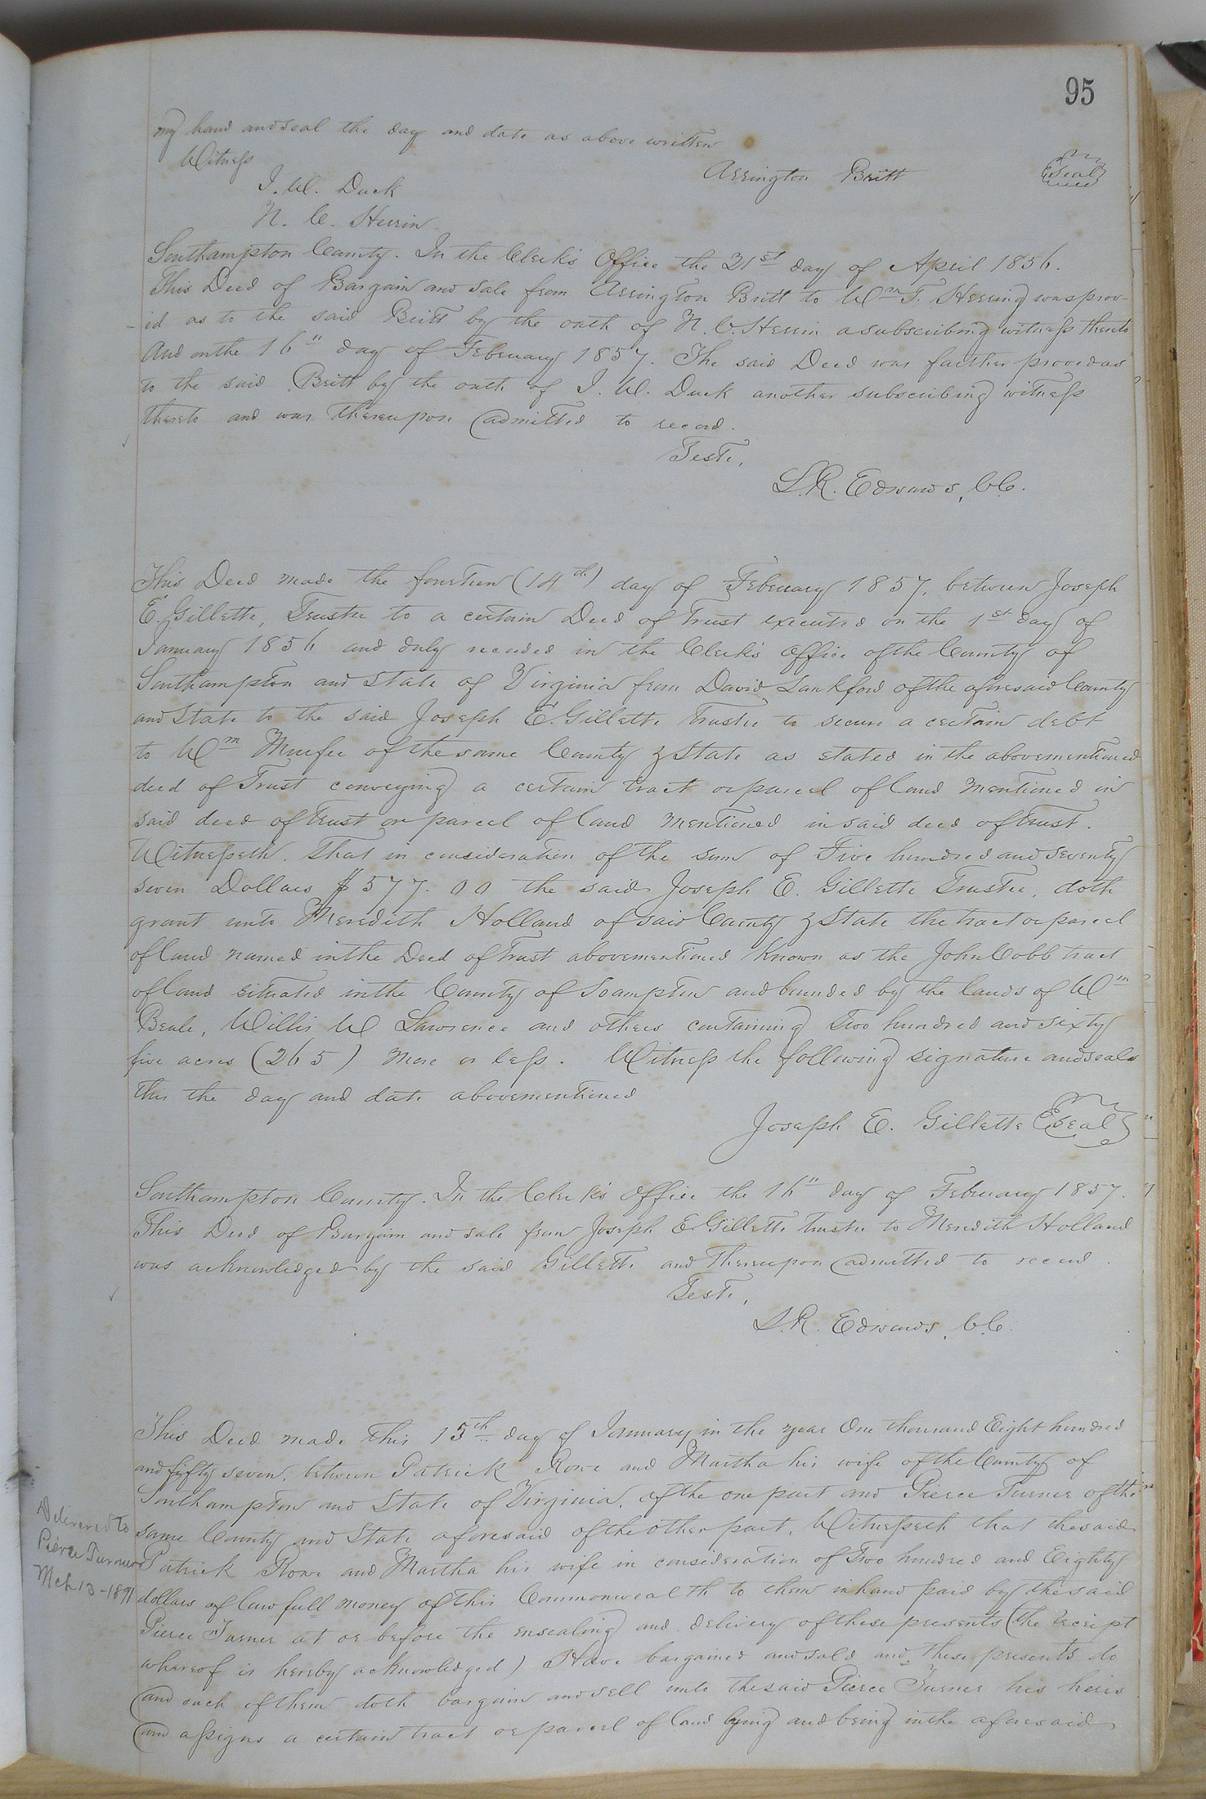 95
my hand and seal the day and date as above written
Witness
Arrington Britt
Seal
J. W. Duck
N. C. Herrin
Southampton County. In the Clerk's Office the 21st day of April 1856.
This Deed of Bargain and sale from Arrington Britt to Wm T. Herring was prov-
-ed as to the said Britt by the oath of N. C. Herrin a subscribing witness thereto
And on the 16" day of February 1857. The said Deed was further proved as
to the said Britt by the oath of J. W. Duck another subscribing witness
thereto and was thereupon admitted to record.
Teste,
L. R. Edwards, C.C.
This Deed made the fourteen (14th) day of February 1857, between Joseph
E. Gillette, Trustee to a certain Deed of Trust executed on the 1st day of
January 1856 and duly recorded in the Clerk's Office of the County of
Southampton and State of Virginia from David Lankford of the aforesaid County
and State to the said Joseph E. Gillette Trustee to secure a certain debt
to Wm Murfee of the same County & State as stated in the abovementioned
deed of Trust conveying a certain tract or parcel of land mentioned in
said deed of trust or parcel of land mentioned in said deed of trust.
Witnesseth. That in consideration of the sum of Five hundred and seventy
seven Dollars $577.00 the said Joseph E. Gillette Trustee, doth
grant unto Meredith Holland of said County & State the tract or parcel
of land named in the Deed of Trust abovementioned Known as the John Cobb tract
of land situated in the County of Soampton and bounded by the lands of Wm
Beale, Willis W Lawrence and others containing two hundred and sixty
five acres (265) more or less. Witness the following signature and seals
this the day and date abovementioned
Joseph E. Gillette Seal
Southampton County. In the Clerk's Office the 16" day of February 1857.
This Deed of Bargain and sale from Joseph E. Gillette trustee to Meredith Holland
was acknowledged by the said Gillette and thereupon admitted to record.
Teste,
L. R. Edwards, C.C.
This Deed made this 15th day of January in the year One thousand Eight hundred
and fifty seven, between Patrick Rowe and Martha his wife of the County of
Southampton and State of Virginia, of the one part and Pierce Turner of the
same County and State aforesaid of the other part. Witnesseth that the said
Patrick Rowe and Martha his wife in consideration of Two hundred and Eighty
dollars of law full money of this Commonwealth to them in hand paid by the said
Pierce Turner at or before the ensealing and delivery of these presents (the receipt
whereof is hereby acknowledged) Have bargained and sold and these presents do
and each of them doth bargain and sell unto the said Pierce Turner his heirs
and assigns a certain tract or parcel of land lying and being in the aforesaid
Delivered to
Pierce Turner
Mch 13 - 1891